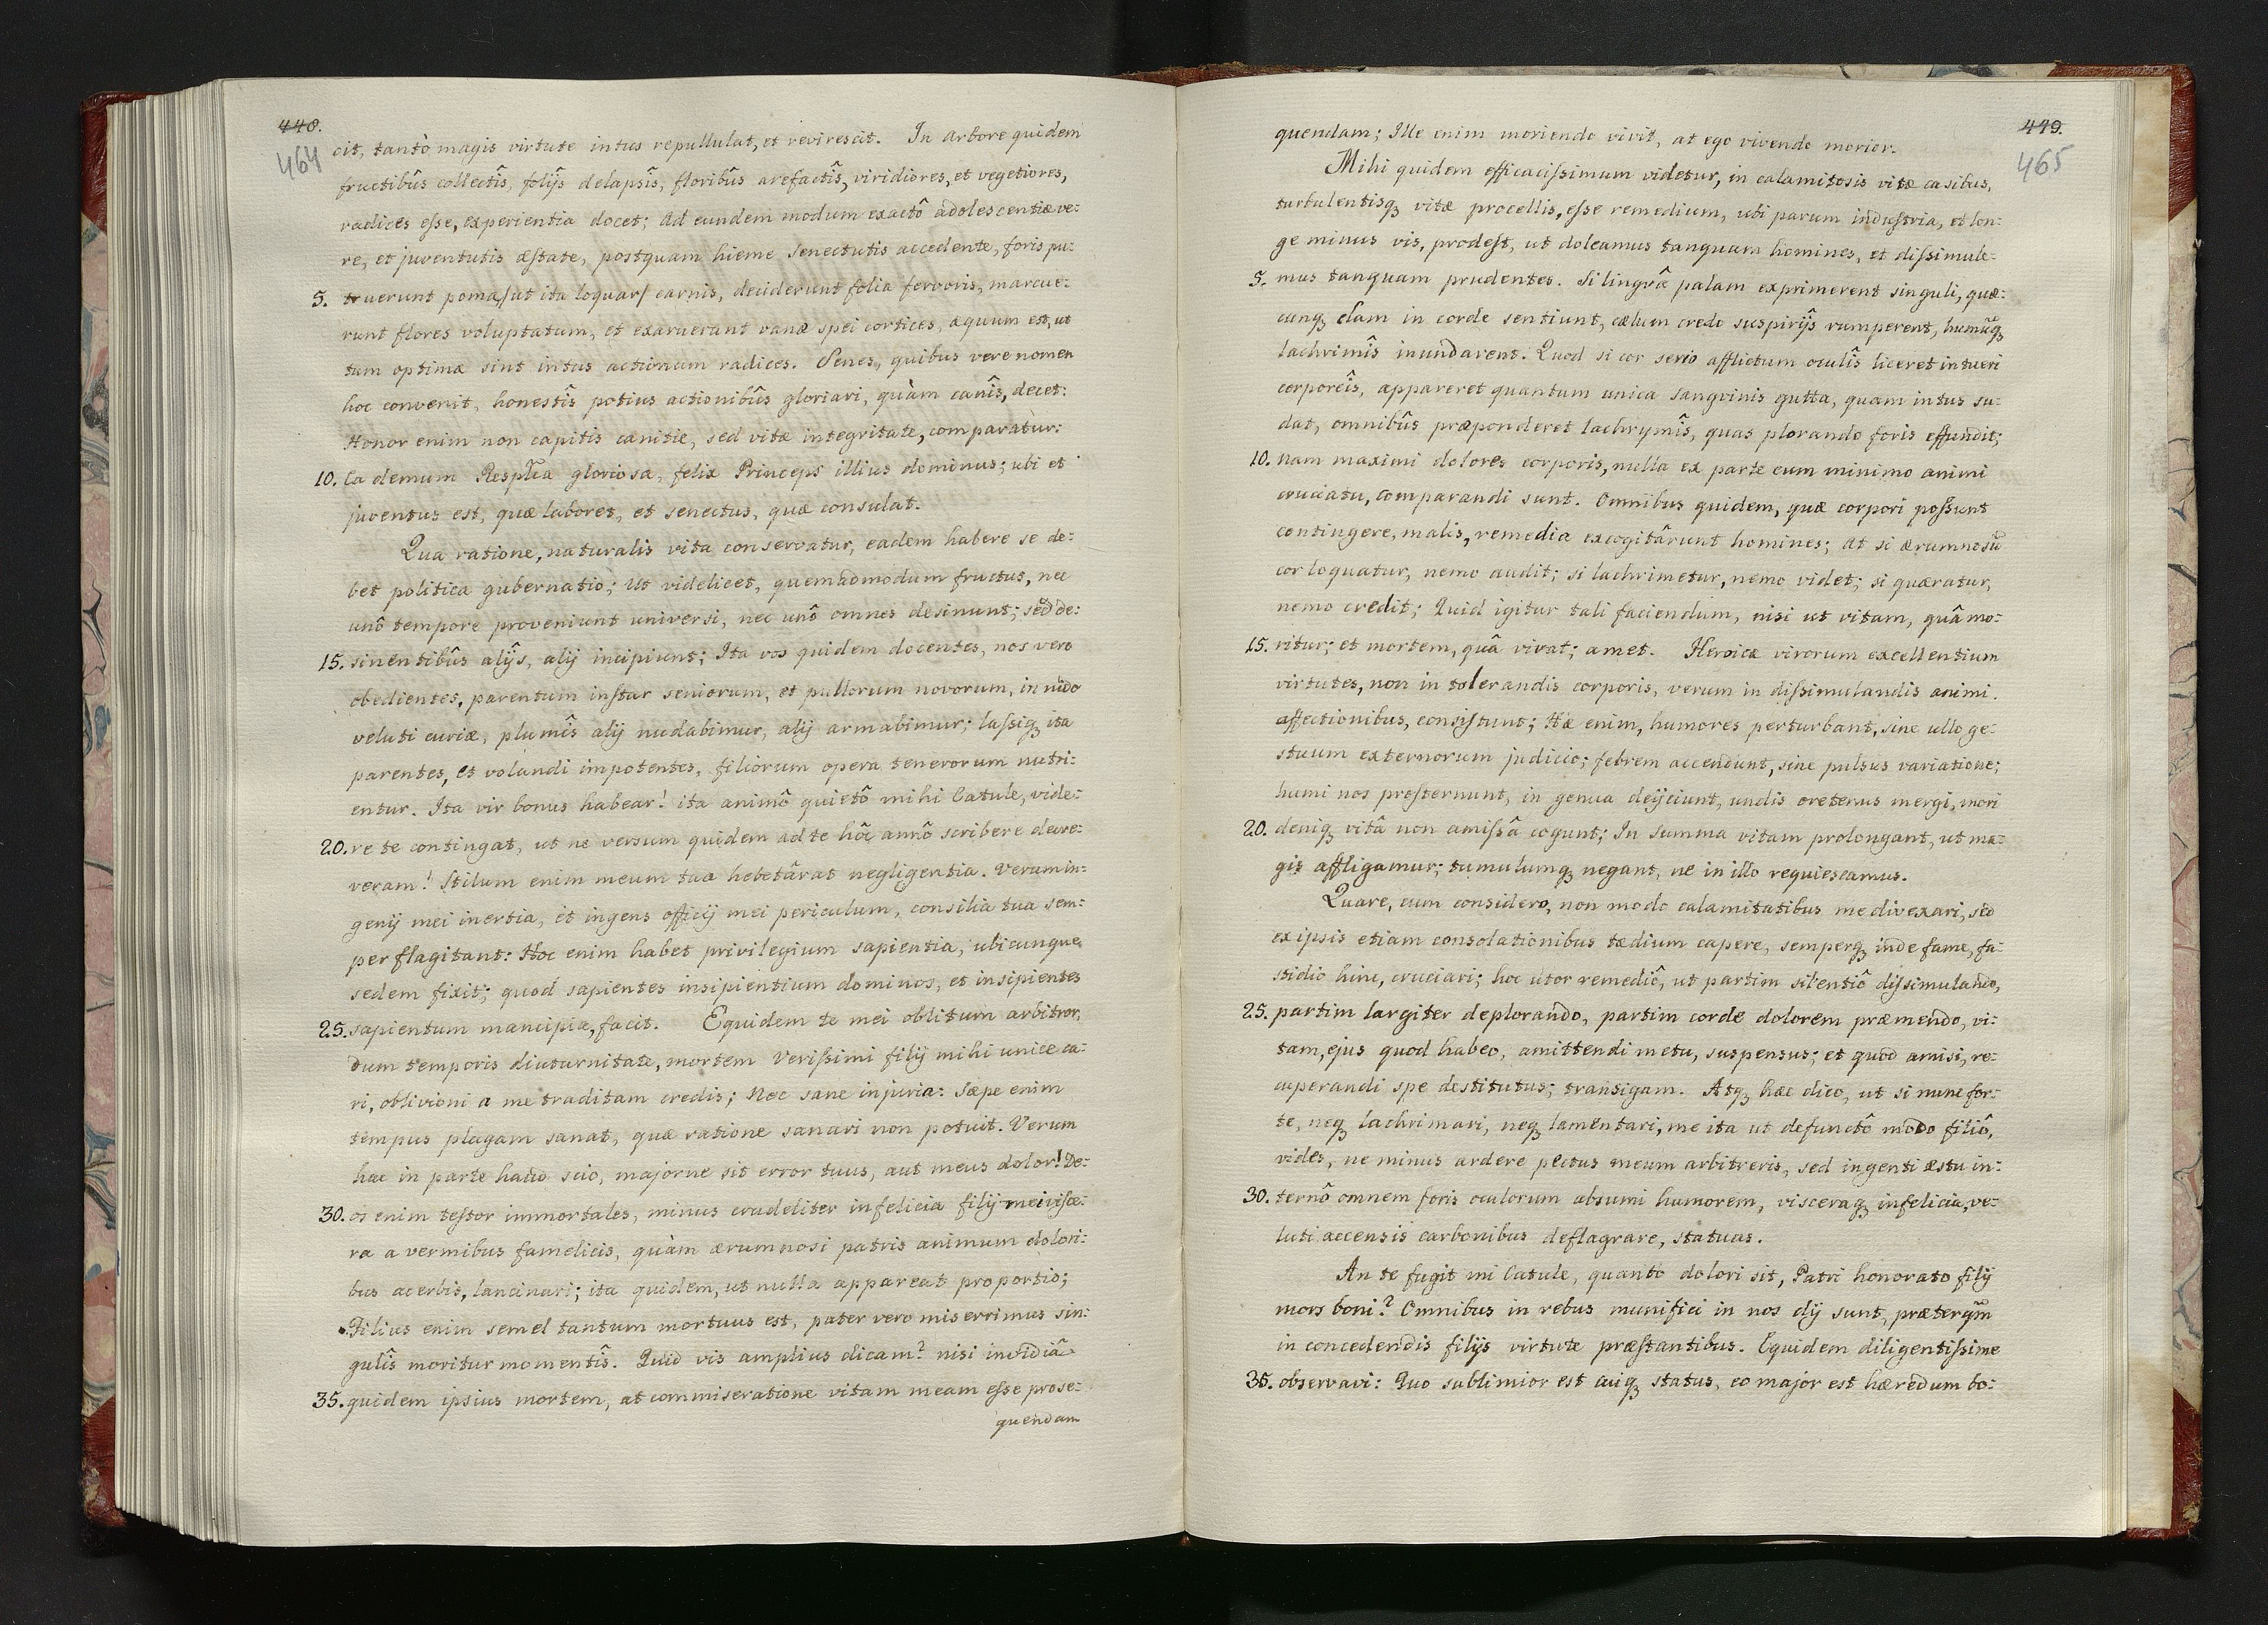 448.
464
cit, tantò magis virtute intus repullulat, et revirescit. In arbore quidem
fructibûs collectîs, folijs delapsîs, floribûs arefactîs, viridiores, et vegetiores,
radices esse, experientia docet; Ad eundem modum exactô adolescentiæ ve:
re, et juventutis æstate, postquam hieme senectutis accedente, foris pu:
5. truerunt poma /ut ita loquar/ carnis, deciderunt folia fervoris, marcue:
runt flores voluptatum, et exaruerunt vanæ spei cortices, æquum est, ut
tum optimæ sint intus actionum radices. Senes, quibus vere nomen
hoc convenit, honestîs potius actionibûs gloriari, quàm canîs, decet:
Honor enim non capitis canitie, sed vitæ integritate, comparatur:
10. Ea demum Respĩca gloriosa, felix Princeps illius dominus; ubi et
juventus est, quæ laboret, et senectus, quæ consulat.
Qua ratione, naturalis vita conservatur, eadem habere se de:
bet politica gubernatio; Ut videlicet, quemadmodum fructus, nec
unô tempore proveniunt universi, nec unô omnes desinunt; sed de:
15. sinentibûs alijs, alij incipiunt; Ita vos quidem docentes, nos vero
obedientes, parentum instar seniorum, et pullorum novorum, in nido
veluti curiæ, plumîs alij nudabimur, alij armabimur; lassiq; ita
parentes, et volandi impotentes, filiorum opera tenerorum nutri:
entur. Ita vir bonus habear! ita animô quietô mihi Catule, vide:
20. re te contingat, ut ne versum quidem ad te hôc annô scribere decre:
veram! Stilum enim meum tua hebetârat negligentia. Verum in:
genij mei inertia, et ingens officij mei periculum, consilia tua sem:
per flagitant: Hoc enim habet privilegium sapientia, ubicunque
sedem fixit; quod sapientes insipientium dominos, et insipientes
25. sapientum mancipia, facit. Equidem te mei oblitum arbitror,
dum temporis diuturnitate, mortem Verissimi filij mihi unice ca:
ri, oblivioni a me traditam credis; Nec sane injuria: Sæpe enim
tempus plagam sanat, quæ ratione sanari non potuit. Verum
hac in parte haud scio, majorne sit error tuus, aut meus dolor! De:
30. os enim testor immortales, minus crudeliter infelicia filij mei visce:
ra a vermibus famelicis, quàm ærumnosi patris animum dolori:
bus acerbis, lancinari; ita quidem, ut nulla appareat proportio;
Filius enim semel tantum mortuus est, pater vero miserrimus sin:
gulîs moritur momentîs. Quid vis amplius dicam? nisi invidiâ
35. quidem ipsius mortem, at commiseratione vitam meam esse prose:
quendam
449.
465
quendam; Ille enim moriendo vivit, at ego vivendo morior.
Mihi quidem efficacissimum videtur, in calamitosis vitæ casibus,
turbulentisq; vitæ procellis, esse remedium, ubi parum industria, et lon:
ge minus vis, prodest, ut doleamus tanquam homines, et dissimule:
5. mus tanquam prudentes. Si lingvâ palam exprimerent singuli, quæ:
cunq; clam in corde sentiunt, cælum credo suspirijs rumperent, humũq;
lachrimîs inundarent. Quod si cor serio afflictum oculîs liceret intueri
corporeîs, appareret quantum unica sangvinis gutta, quam intus su:
dat, omnibûs præponderet lachrymîs, quas plorando foris effundit;
10. nam maximi dolores corporis, nulla ex parte cum minimo animi
cruciatu, comparandi sunt. Omnibus quidem, quæ corpori possunt
contingere, malis, remedia excogitârunt homines; At si ærumnosũ
cor loquatur, nemo audit; si lachrimetur, nemo videt; si quæratur,
nemo credit; Quid igitur tali faciendum, nisi ut vitam, quâ mo:
15. ritur; et mortem, quâ vivat; amet. Heroicæ virorum excellentium
virtutes, non in tolerandis corporis, verum in dissimulandis animi
affectionibus, consistunt; Hæ enim, humores perturbant, sine ullo ge:
stuum externorum judicio; febrem accendunt, sine pulsus variatione;
humi nos prosternunt, in genua dejiciunt, undis oretenus mergi, mori
20. deniq; vitâ non amissâ cogunt; In summa vitam prolongant, ut ma:
gis affligamur; tumulumq; negant, ne in illo requiescamus.
Quare, cum considero, non modo calamitatibus me divexari, sed
ex ipsis etiam consolationibus tædium capere, semperq; inde fame, fa:
stidio hinc, cruciari; hoc utor remediô, ut partim silentiô dissimulando,
25. partim largiter deplorando, partim corde dolorem præmendo, vi:
tam, ejus quod habeo, amittendi metu, suspensus; et quod amisi, re:
cuperandi spe destitutus; transigam. Atq; hæc dico, ut si nunc for:
te, neq; lachrimari, neq; lamentari, me ita ut defunctô modo filiô,
vides, ne minus ardere pectus meum arbitreris, sed ingenti æstu in:
30. ternô omnem foris oculorum absumi humorem, visceraq; infelicia, ve:
luti accensis carbonibus deflagrare, statuas.
An te fugit mi Catule, quanto dolori sit, Patri honorato filij
mors boni? Omnibus in rebus munifici in nos dij sunt, præterq̃m
in concedendis filijs virtute præstantibus. Equidem diligentissime
35. observavi: Quo sublimior est cuiq; status, eo major est hæredum bo: